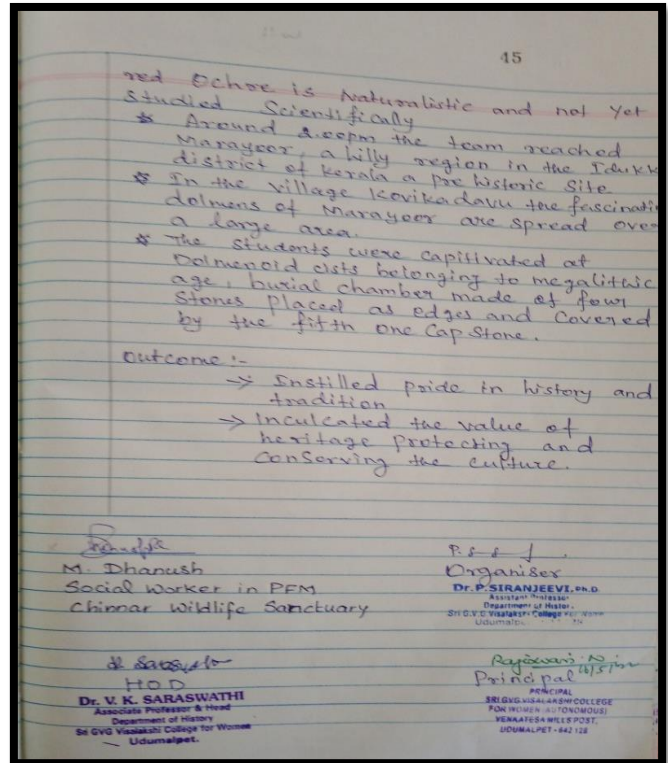 45
red Ochre is Naturalistic and not yet
Studied Scientifically
* Around 2.00pm the team reached
Marayoor, a hilly region in the Idukk
district of Kerala a pre historic Site
* In the village Kovikadavu the fascinati
dolmens of Marayoor are spread over
a large area.
* The Students were capitivated at
Dolmenoid cists belonging to megalithic
age, burial chamber made of four
Stones placed as edges and Covered
by the fifth one Cap Stone.
Outcome :-
→ Instilled pride in history and
tradition
→ Inculcated the value of
heritage protecting and
Conserving the culture.
M. Dhanush
Social Worker in PFM
Chinnar Wildlife Sanctuary
P. S
Organiser
Dr. P. SIRANJEEVI, Ph.D
Assistant Professor
Department of History
Sri G.V.G Visalakshi College for Women
Udumalpe
HOD
Dr. V. K. SARASWATHI
Associate Professor & Head
Department of History
Sri GVG Visalakshi College for Women
Udumalpet.
Rajeswari. N
Principal
PRINCIPAL
SRI GVG VISALAKSHI COLLEGE
FOR WOMEN (AUTONOMOUS)
VENKATESA MILLS POST,
UDUMALPET - 642 128